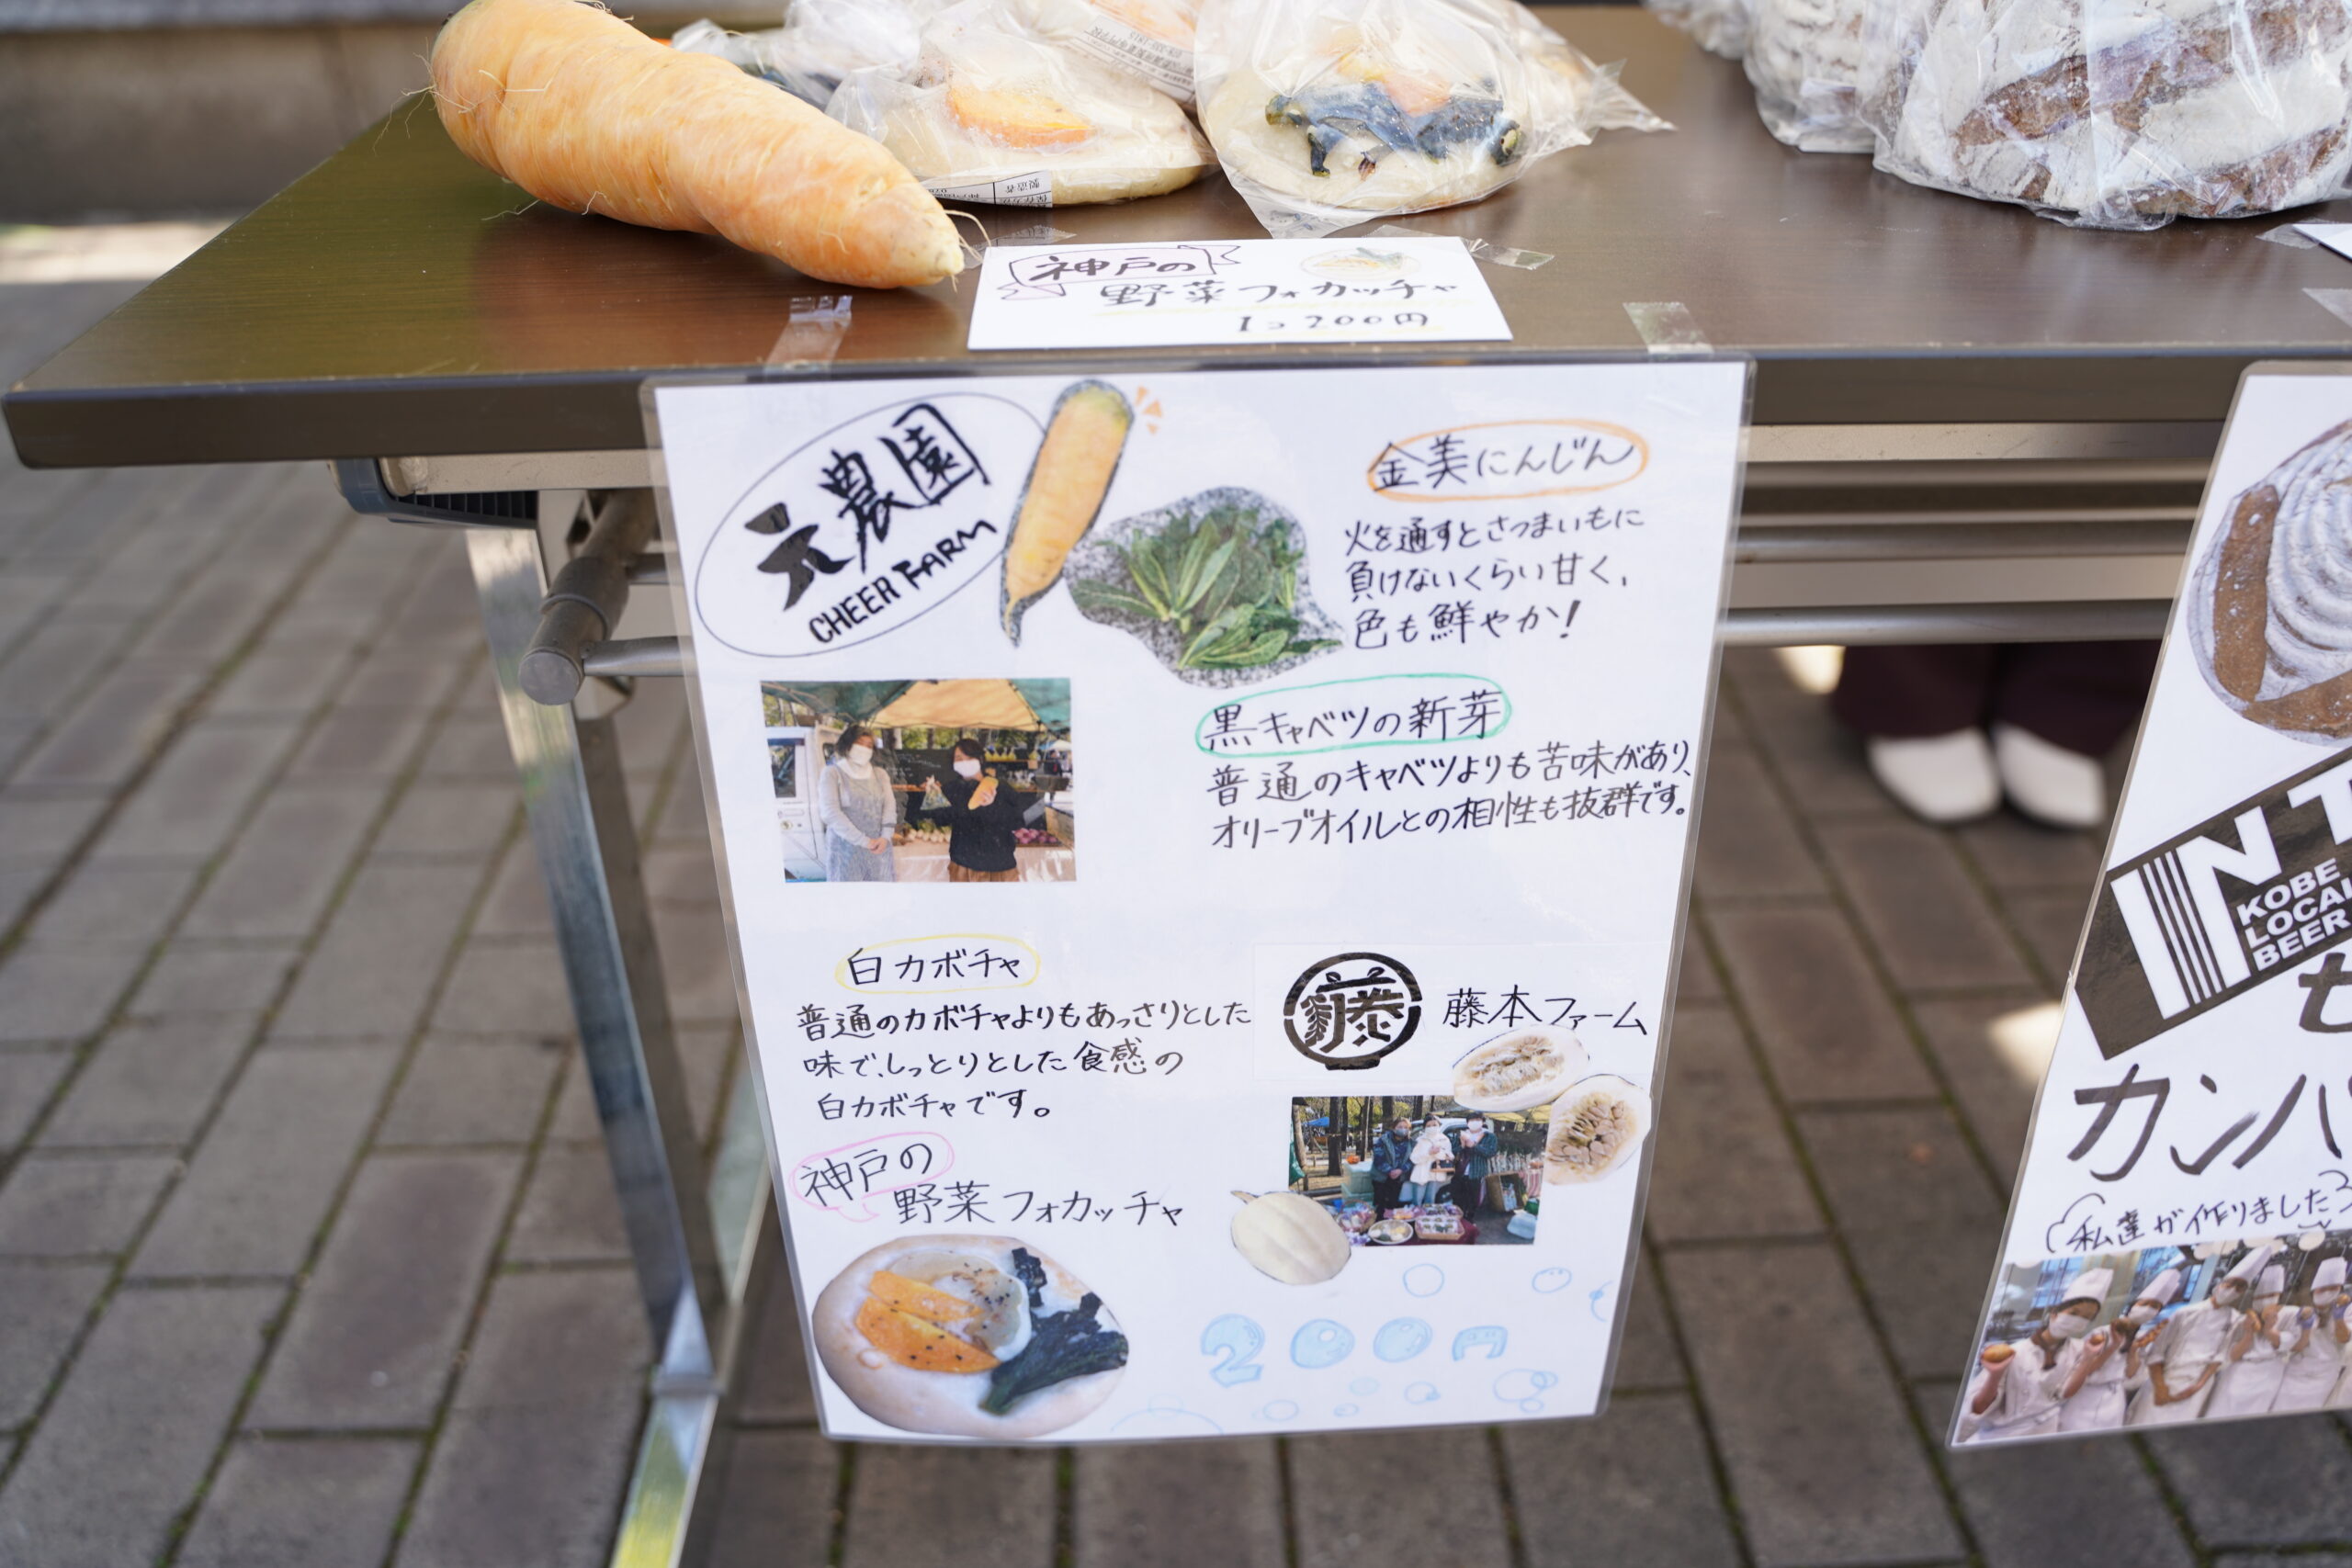 神戸の
野菜フォカッチャ
1コ200円
元農園
CHEER FARM
金美にんじん
火を通すとさつまいもに
負けないくらい甘く、
色も鮮やか!
黒キャベツの新芽
普通のキャベツよりも苦味があり、
オリーブオイルとの相性も抜群です。
白カボチャ
普通のカボチャよりもあっさりとした
味で、しっとりとした食感の
白カボチャです。
藤
藤本ファーム
神戸の
野菜フォカッチャ
200円
KOBE
LOCAL
BEER
カンパ
私達が作りました